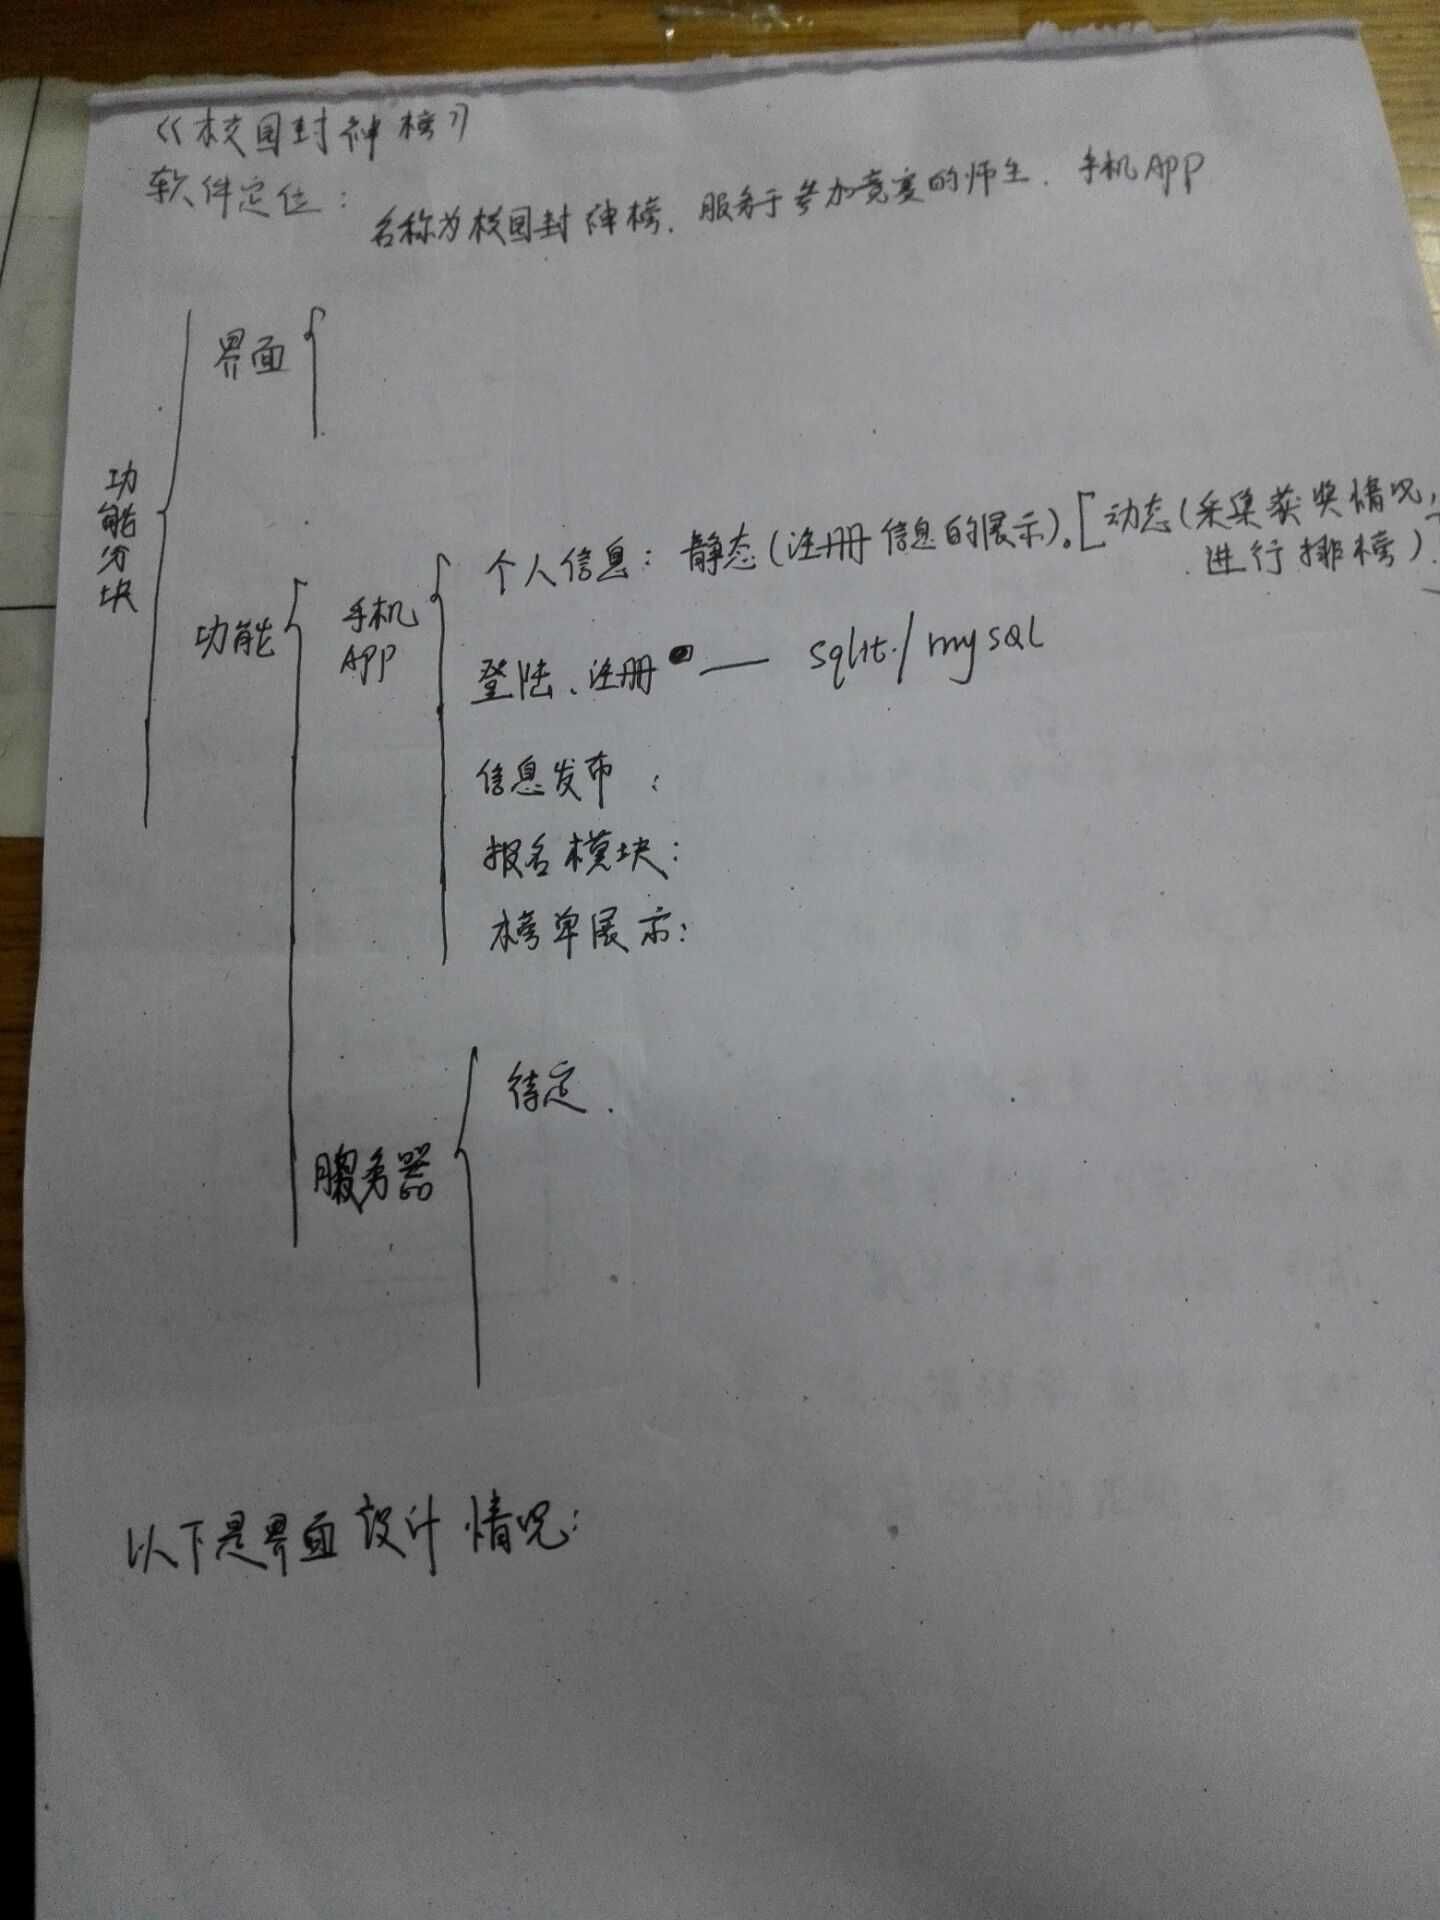 《校园封神榜》
软件定位：
名称为校园封神榜．服务于参加竞赛的师生．手机APP
界面
功能分块
个人信息：静态（注册信息的展示）。［动态（采集获奖情况，
进行排榜）］
手机
APP
功能
登陆、注册 — sqlit./mysQL
信息发布：
报名模块：
榜单展示：
待定．
服务器
以下是界面设计情况：